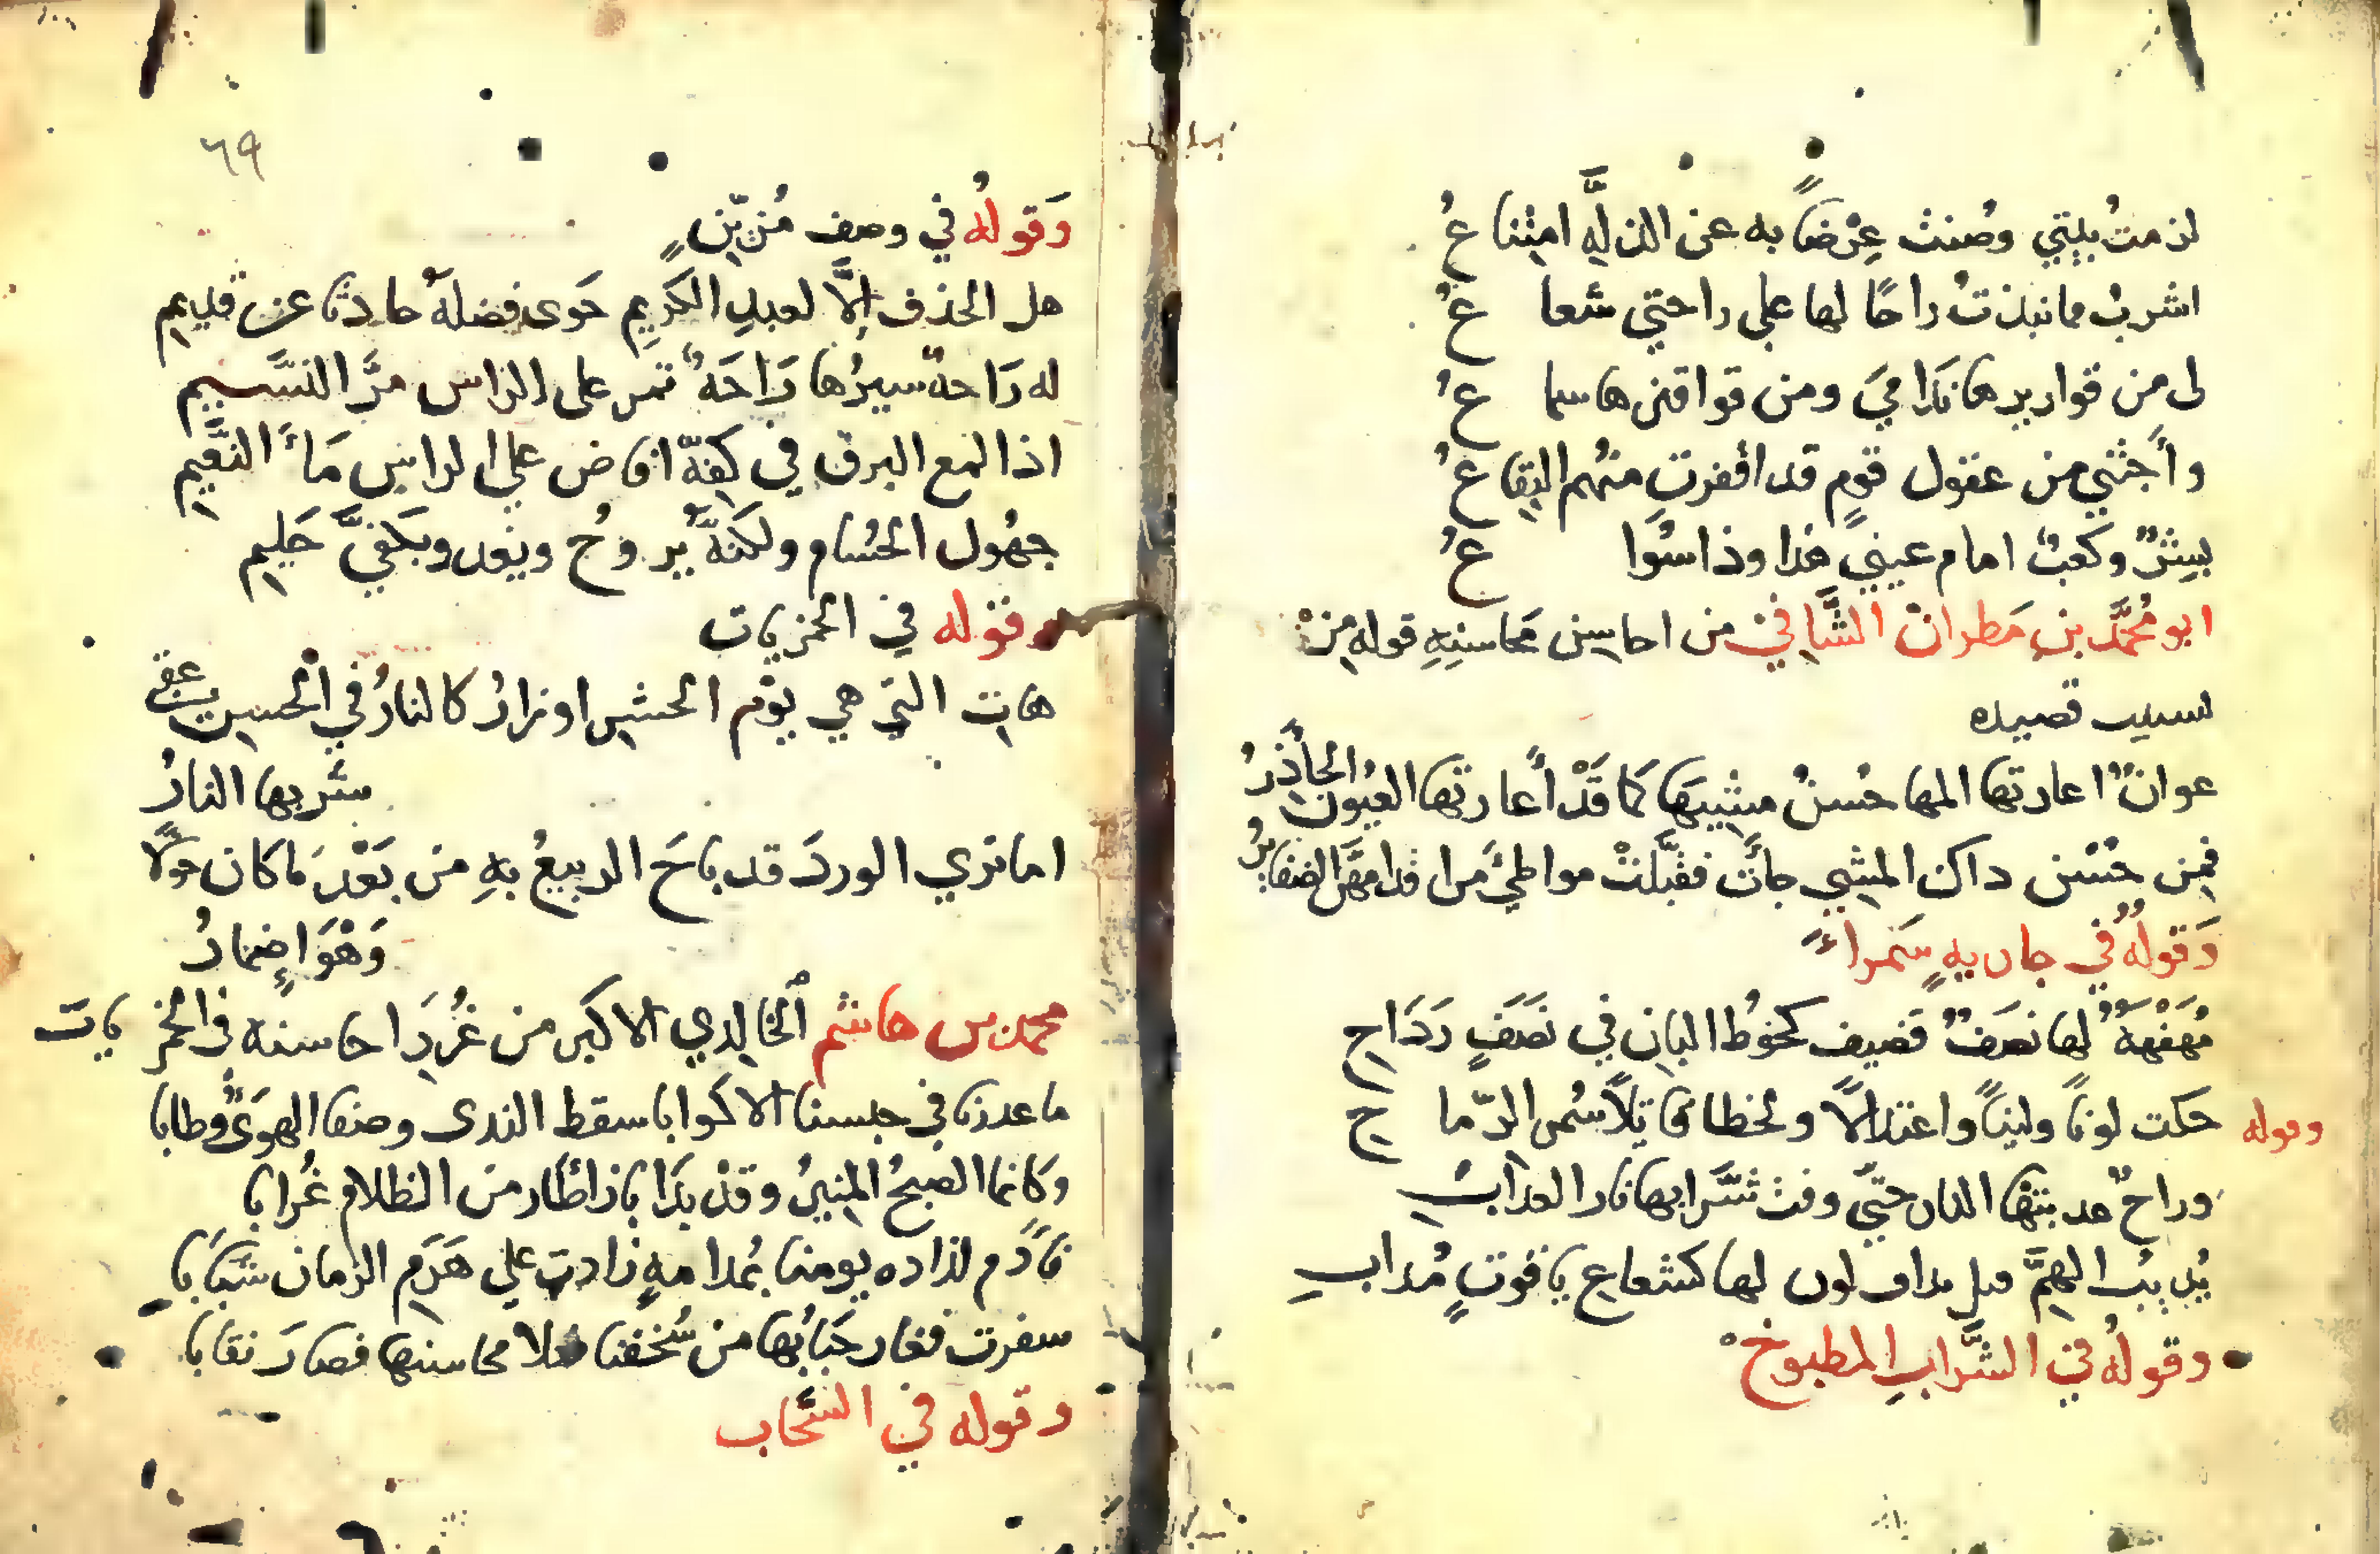 لزمتُ بيتي وصُنتُ عِرْضًا به عن الذلَّةِ امتنا عُ
اشربُ مما نبذتُ راحًا لها على راحتي شعا عُ
لي من قواريرها نَدَامي ومن قواقزها سما عُ
وأجتني من عقول قومٍ قد اقفرت منهم البقا عُ
ببِشْرٌ وكعبٌ امام عيني هذا وذا سُوا عُ
ابو مُحمَّد بن مَطران الشَّاشي من احاسِن محاسنهِ قوله مِنْ
نسيب قصيده
عوانٌ اعارتها المها حُسنُ مشيها كما قَدْ أعارتها العيُون الجأذرُ
فمِن حُسْن داك المشي جأت فقبَّلتْ مواطئَ من اقدامهنَّ الضفايرُ
وَقولُهُ في جاريهٍ سَمراءَ
مُهَفْهفَةٌ لها نصَفٌ قَضيف كخُوط البانِ في نصَفٍ رَدَاحِ
وقوله حكت لونًا ولينًا واعتدالًا ولحظا قاتِلًا سُمر الرّما حِ
وراحٌ عدبتها النار حتيَّ وقت شَّرابها نار العداب
يُديبُ الهمَّ قبل مداق لون لها كشعاعِ ياقوتٍ مُداب
وقولُه في الشَّرابِ المطبوخ
٦٩
وَقولُه في وصف مُزيّنٍ
هل الحذف إلَّا لعبدِ الكَريمِ حَوى فضلَهُ حادثا عن قديمِ
له رَاحةٌ سيرُها رَاحَهٌ تمر على الراس مرَّ النسَّيمِ
اذا لمع البرق في كفِّهِ افاض علي الراسِ مَاءَ النَّعِيمِ
جهُول الحُسَام ولكنَّهُ يُروحُ ويغدو بكفيَّ حَلِيمِ
وقوله في الخمريات
هاتِ التي هي يوْم الحشرِ اوزارُ كالنارُ في الحُسن عقبي
شربها النارُ
اما تري الوردَ قد باحَ الربيعُ بهِ من بَعْدِ ما كان حولًا
وَهْوَ اِضمارُ
محمد بن هاشم الخالِدي الاكبر من غُرَرِ احاسنه في الخمريات
ما عدرنا في حبسنا الاكوابا سقط الندى وصفا الهوَىَ وطابا
وكانما الصبحُ المنيرُ وقدْ بَدَا بازٌ أَطَار من الظلامِ غُرابا
فأَدم لذاده يومنا بمُدامهٍ زادت علي هَرَمِ الزمان شبَابا
سفرت فغار حَبَابُها من سُخفنا فعلا محاسنها فصارَ نقابا
وقوله في السَّحاب